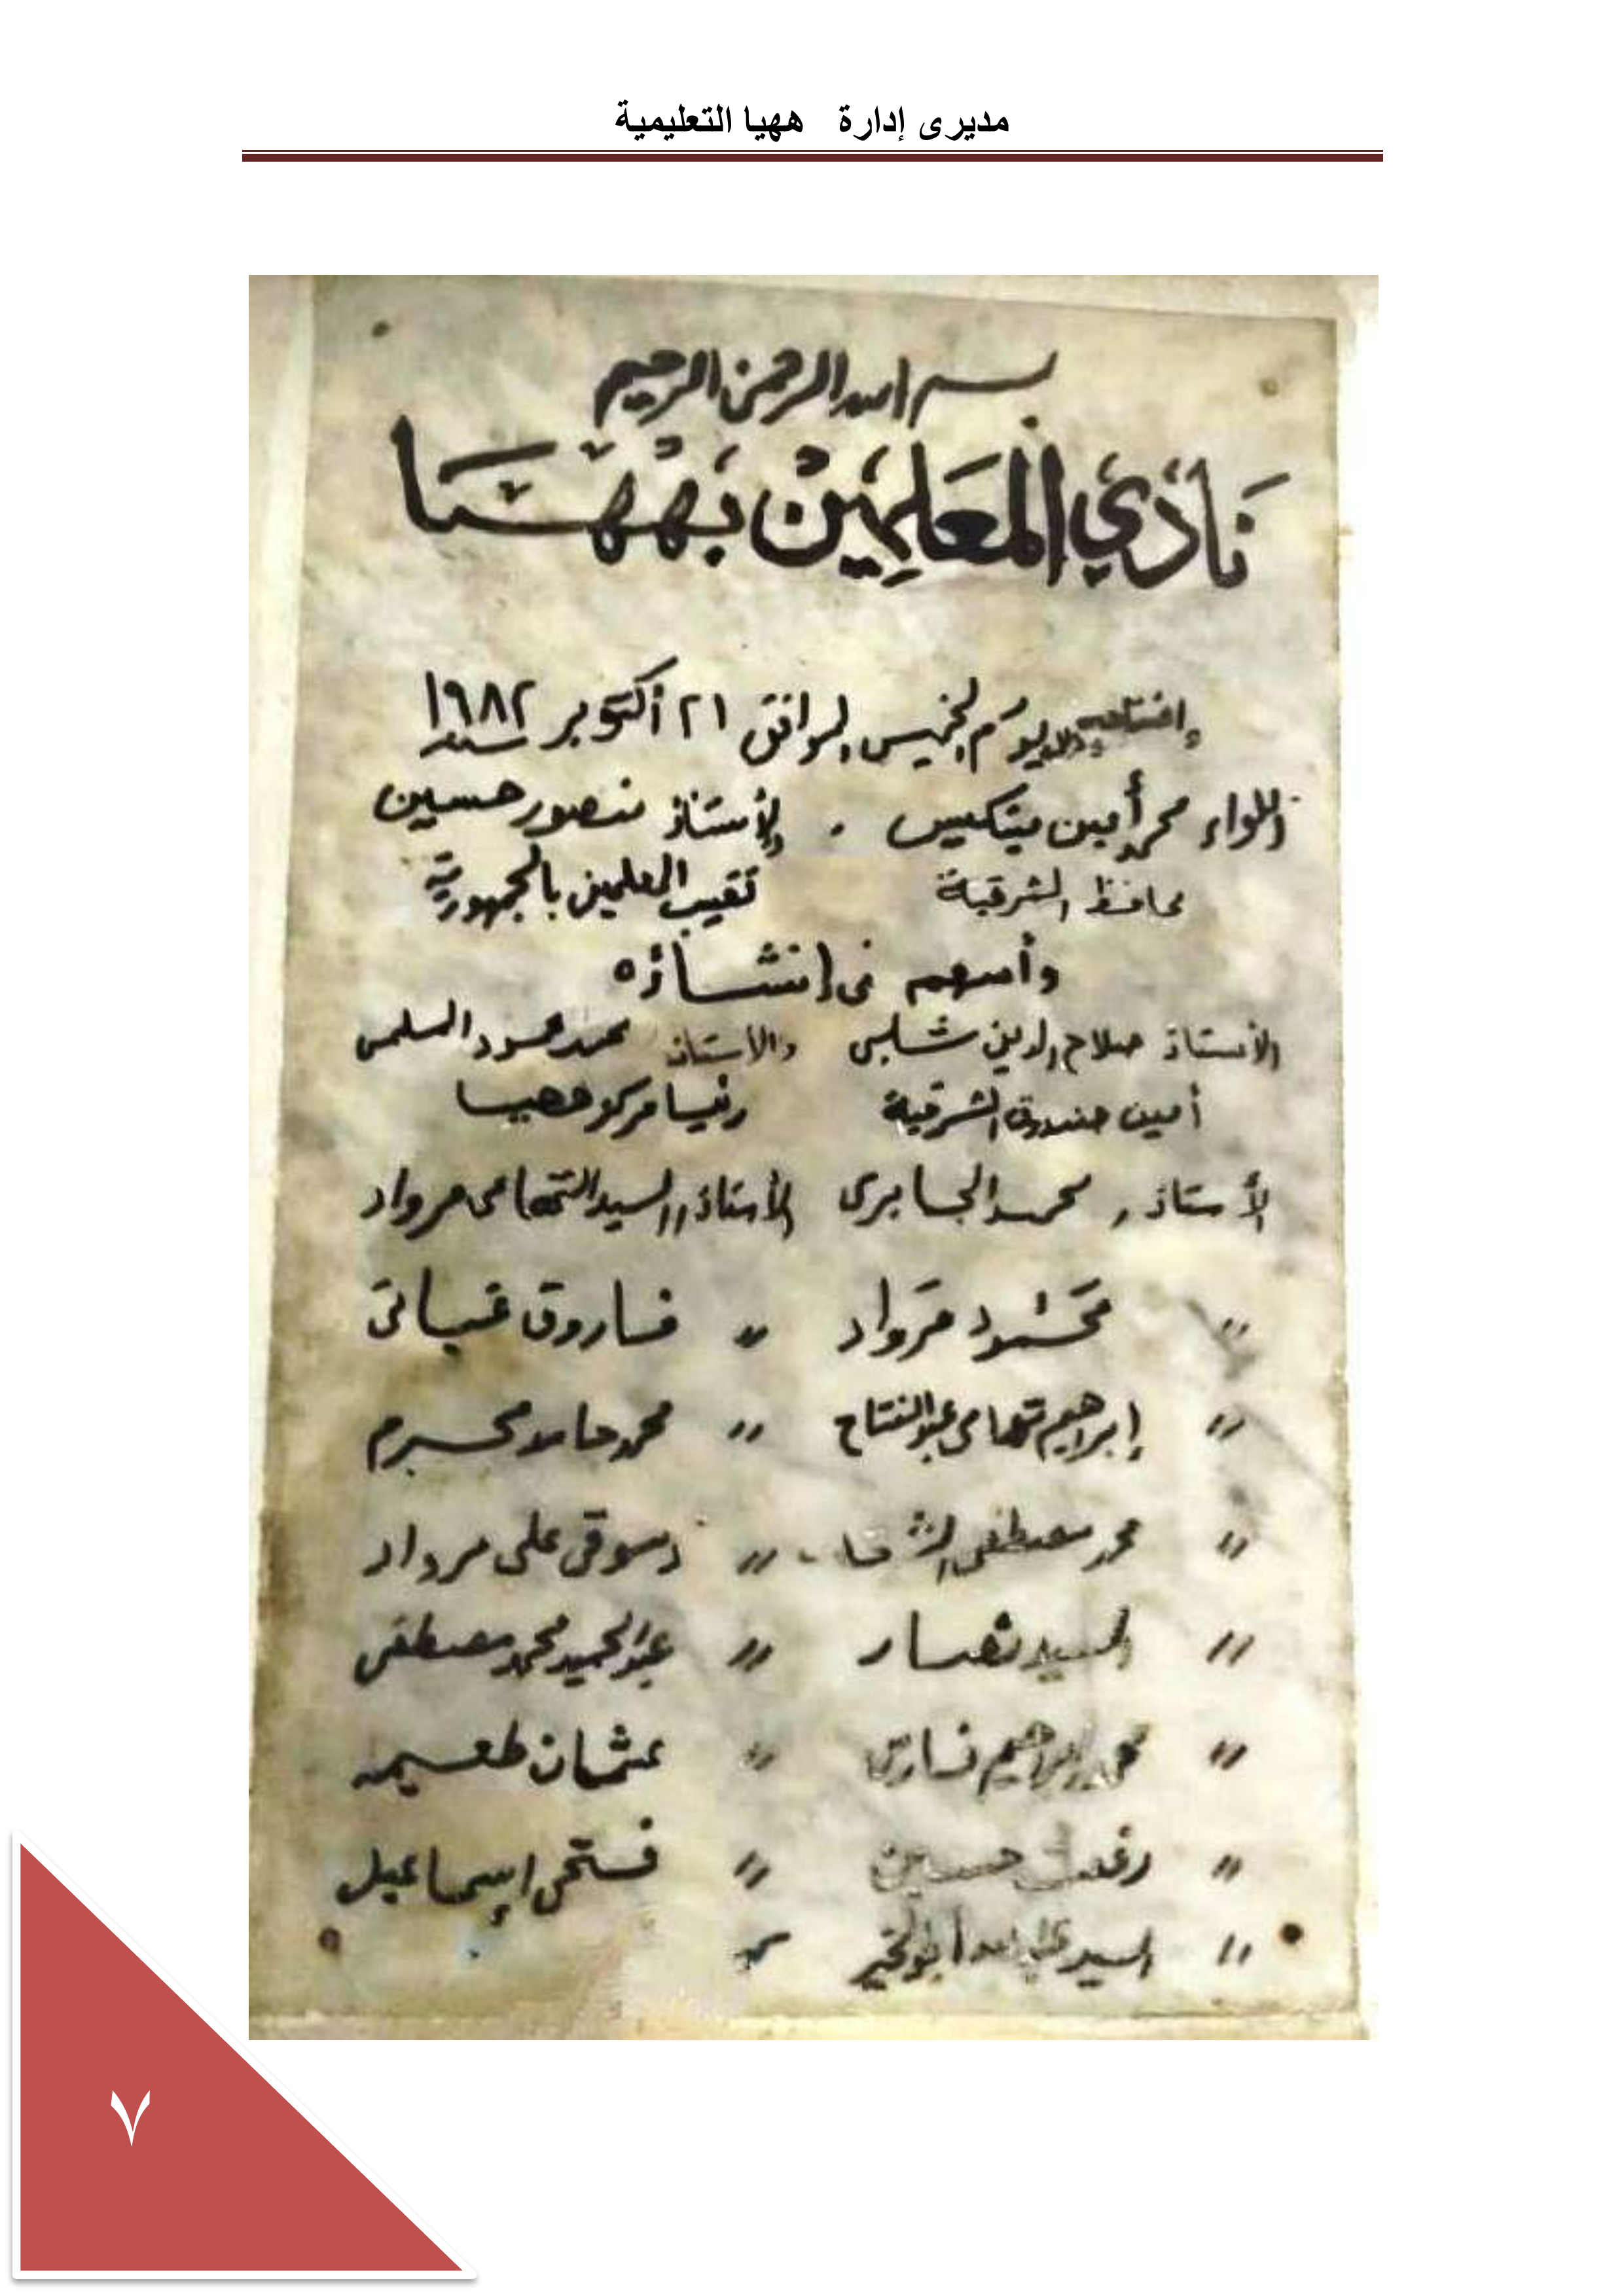 مديرى إدارة ههيا التعليمية
بسم الله الرحمن الرحيم
نَادي المعَلِمين بههيا
إفتتاحه يوم الخميس الموافق ٢١ أكتوبر سنة ١٩٨٢
اللواء محمد أمين ميتكيس . والأستاذ منصور حسين
محافظ الشرقية نقيب المعلمين بالجمهورية
وأسهم فى إنشاؤه
الأستاذ صلاح الدين شلبى والأستاذ محمد محمود السلمى
أمين صندوق الشرقية رئيسا مركز ههيا
الأستاذ / محمد الجابرى الأستاذ // السيد التهامى مرواد
" محمود مرواد " فاروق
" إبراهيم تهامى عبدالفتاح " محمد حامد محرم
" محمد مصطفى " دسوقى على مرواد
" السيد نصار " عبدالحميد محمد مصطفى
" محمد إبراهيم " عثمان طعيمه
" رفعت حسين " فتحى إسماعيل
" السيد عبدالله أبوالخير
٧